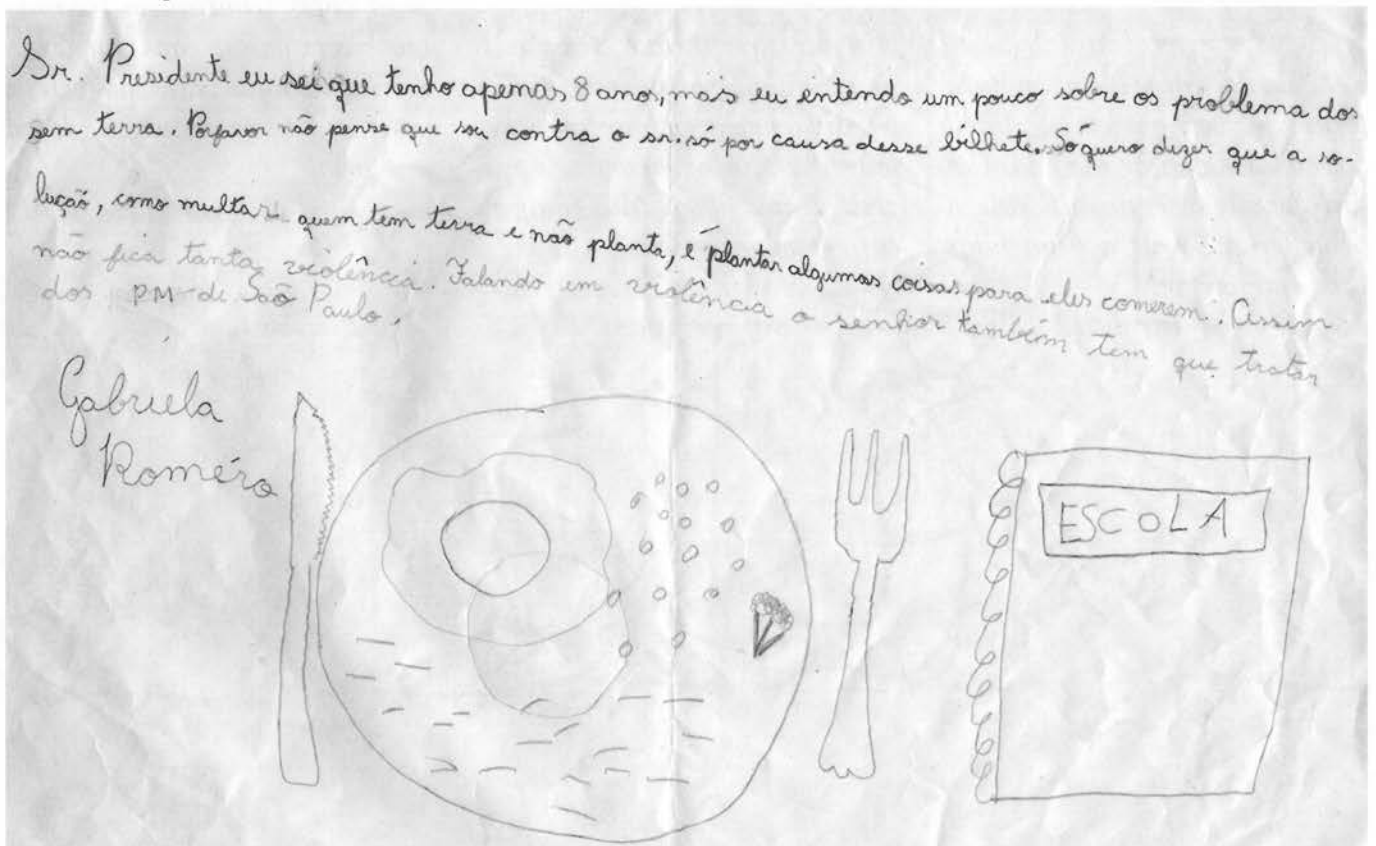 Sr. Presidente eu sei que tenho apenas 8 anos, mais eu entendo um pouco sobre os problema dos
sem terra. Porfavor não pense que sou contra o sr. só por causa desse bilhete. Só quero dizer que a so-
lução, como multar quem tem terra e não planta, é plantar algumas coisas para eles comerem. Assim
não fica tanta violência. Falando em violência o senhor também tem que tratar
dos PM de São Paulo.
Gabriela
Roméro
ESCOLA